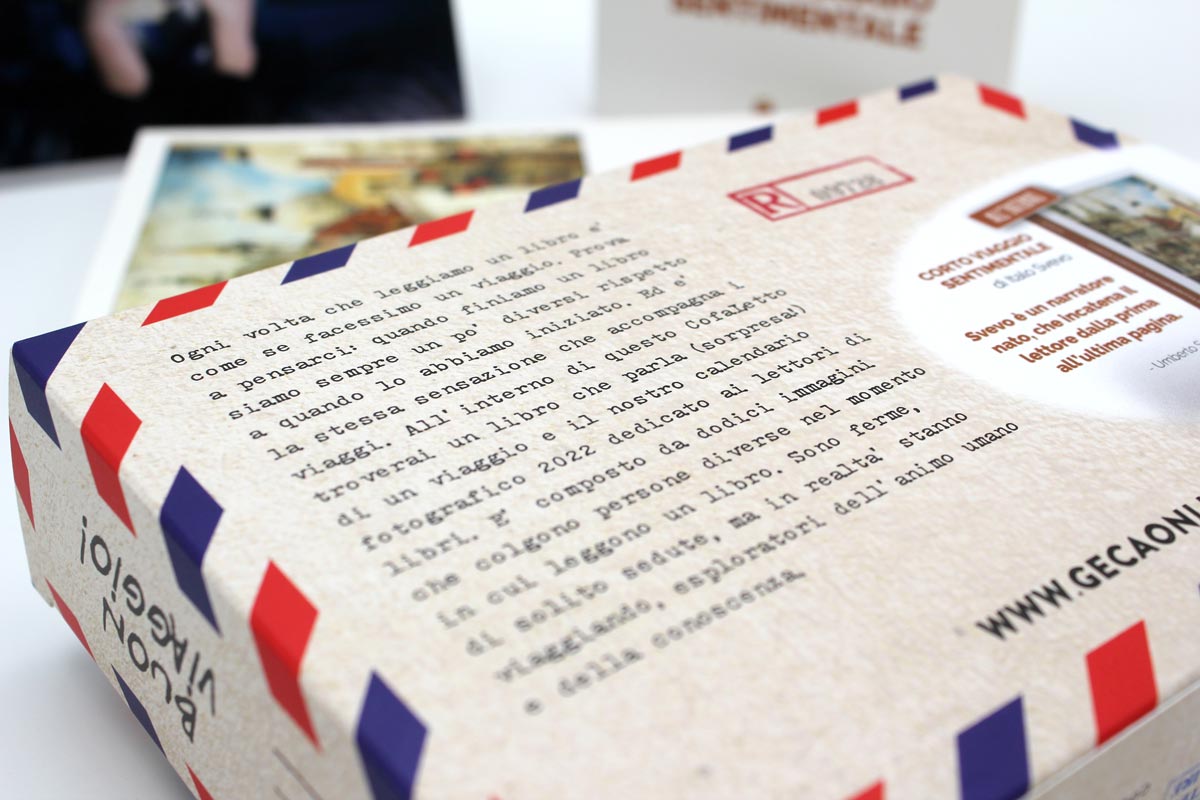 SENTIMENTALE
R 09728
Ogni volta che leggiamo un libro e'
come se facessimo un viaggio. Prova
a pensarci: quando finiamo un libro
siamo sempre un po' diversi rispetto
a quando lo abbiamo iniziato. Ed e'
la stessa sensazione che accompagna i
viaggi. All'interno di questo CofaLetto
troverai un libro che parla (sorpresa!)
di un viaggio e il nostro calendario
fotografico 2022 dedicato ai lettori di
libri. E' composto da dodici immagini
che colgono persone diverse nel momento
in cui leggono un libro. Sono ferme,
di solito sedute, ma in realta' stanno
viaggiando, esploratori dell'animo umano
e della conoscenza
CORTO VIAGGIO
SENTIMENTALE
di Italo Svevo
Svevo è un narratore
nato, che incatena il
lettore dalla prima
all'ultima pagina.
- Umberto S
WWW.GECAONLI
BUON
VIAGGIO!